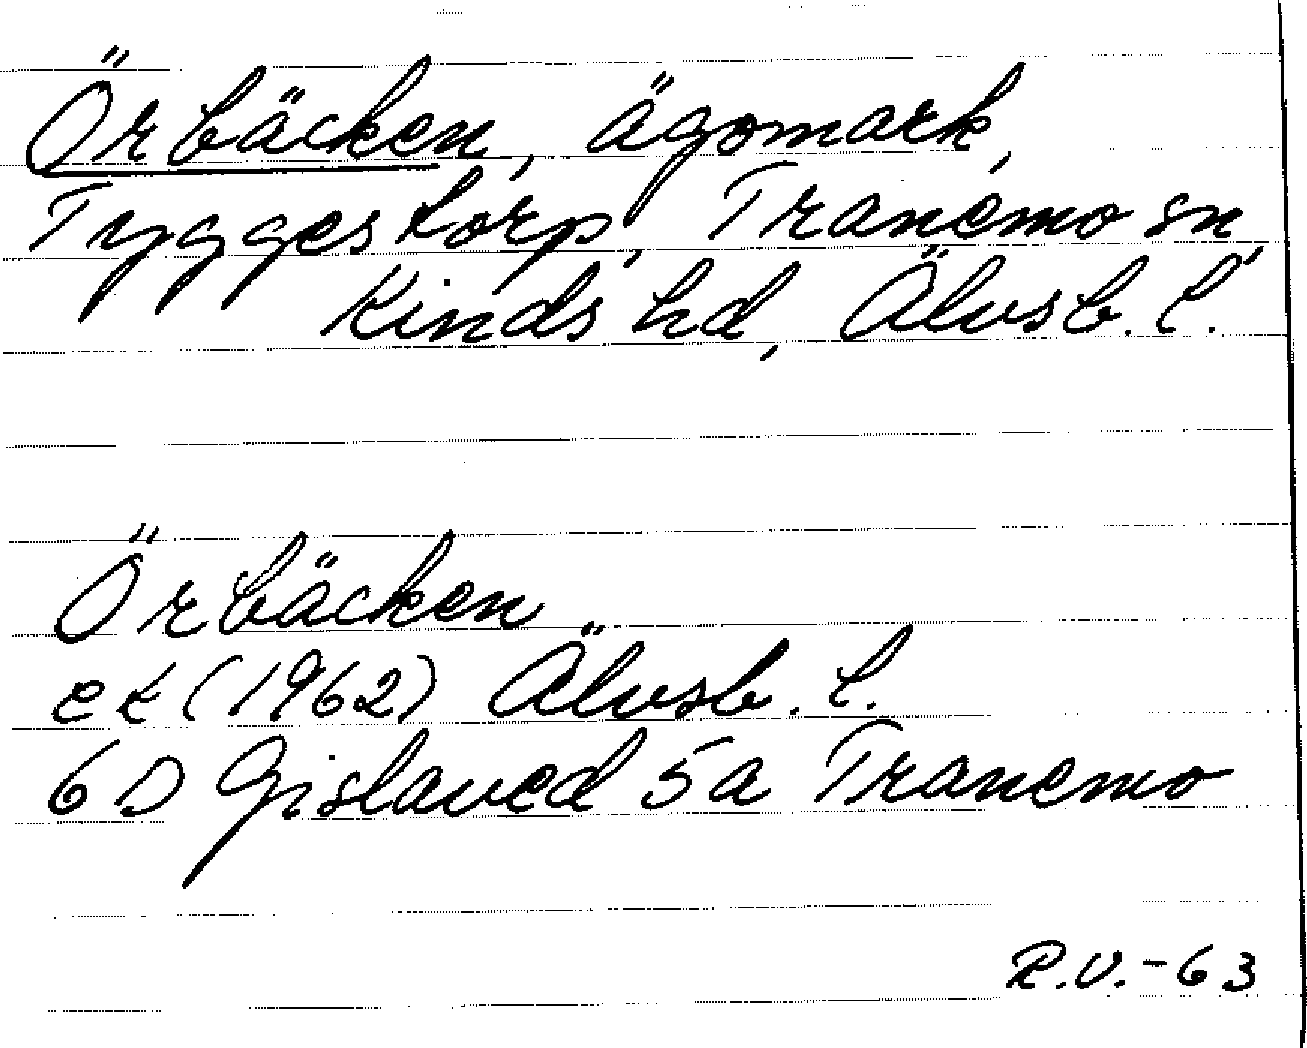 Örbäcken, ägomark,
Tyggestorp, Tranemo sn,
Kinds hd, Älvsb. l.
Örbäcken
ek (1962) Älvsb. l.
6D Gislaved 5a Tranemo
R.V.-63